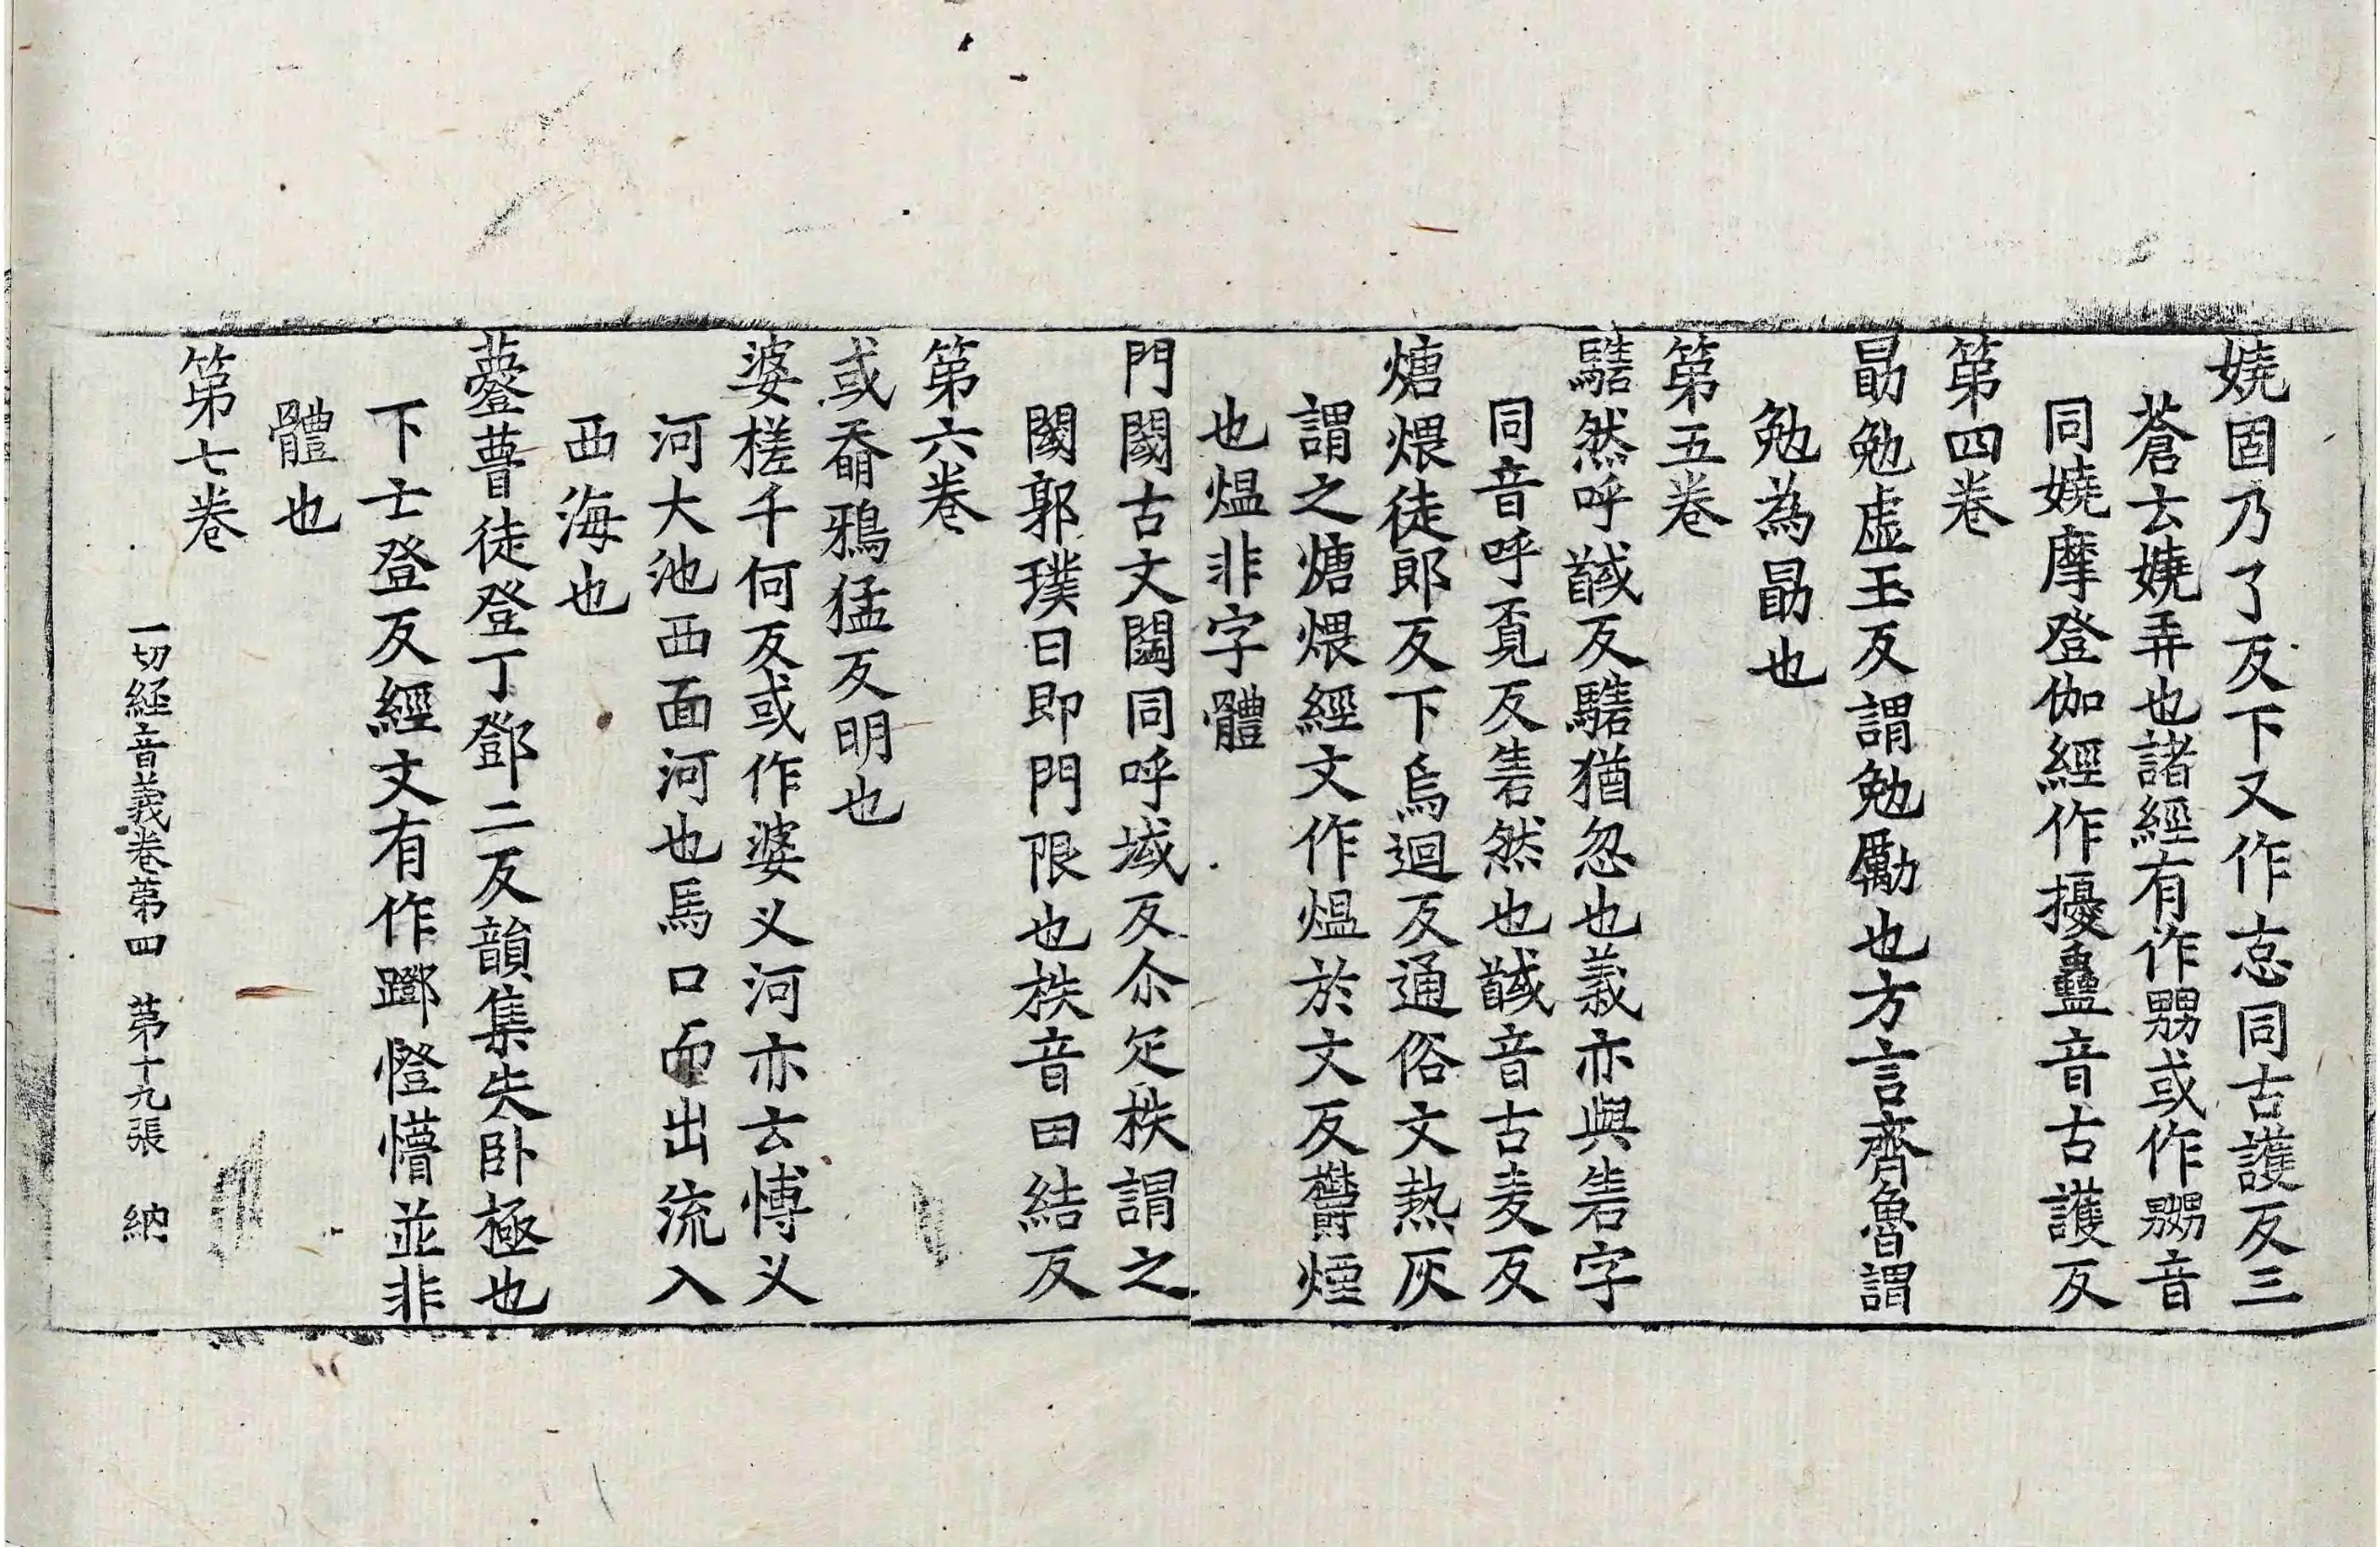 嬈固乃了反下又作怘同古護反三
蒼云嬈弄也諸經有作嬲或作嫐音
同嬈摩登伽經作擾蠱音古護反
第四卷
勗勉虛玉反謂勉勵也方言齊魯謂
勉為勗也
第五卷
騞然呼馘反騞猶忽也義亦與砉字
同音呼覓反砉然也馘音古麦反
煻煨徒郎反下烏迴反通俗文熱灰
謂之煻煨經文作熅於文反欝煙
也熅非字體
門閾古文閾同呼域反尒疋柣謂之
閾郭璞曰即門限也柣音田結反
第六卷
或奛鴉猛反明也
婆槎千何反或作婆义河亦云愽义
河大池西面河也馬口而出流入
西海也
薹瞢徒登丁鄧二反韻集失卧極也
下士登反經文有作躑憕懵並非
體也
第七卷
一切經音義卷第四 第十九張 納